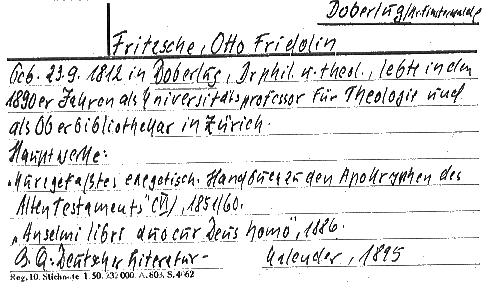 Doberlug/
Fritzsche, Otto Fridolin
Geb. 23.9.1812 in Doberlug, Dr phil. u. theol., lebte in den
1890er Jahren als Universitätsprofessor für Theologie und
als Oberbibliothekar in Zürich.
Hauptwerke:
"Kurzgefaßtes exegetisch. Handbuch zu den Apokryphen des
Alten Testaments" (VI), 1851/60.
"Anselmi libri duo cur Deus homo", 1886.
B. Q. Deutscher Literatur-Kalender, 1895
Reg. 10. Stichnote 1. 50. 232000. A. 803. S. 4/62